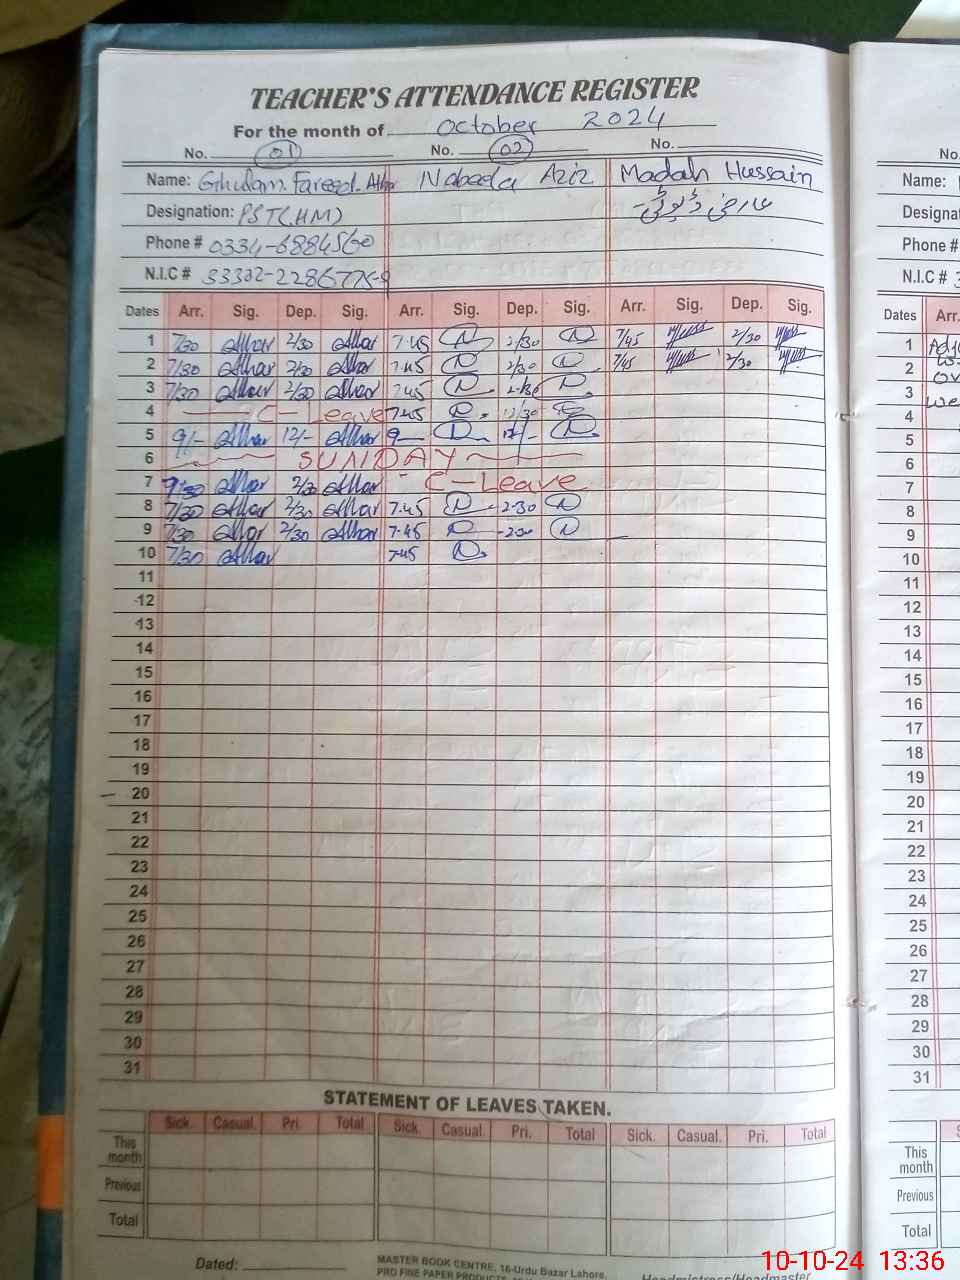 TEACHER'S ATTENDANCE REGISTER
For the month of October 2024
No. 01 No. 02 No.
Name: Ghulam Fareed Athar Nabeela Aziz Madah Hussain
Designation: PST(HM) عارضی ڈیوٹی
Phone # 0334-6884560
N.I.C #
Dates Arr. Sig. Dep. Sig. Arr. Sig. Dep. Sig. Arr. Sig. Dep. Sig.
1 7/30 Athar 2/30 Athar 7.45 N 2/30 N 7/45 2/30
2 7/30 Athar 2/30 Athar 7.45 N 2/30 N 7/45 2/30
3 7/30 Athar 2/30 Athar 7.45 N 2/30 N
4 C-Leave 7.45 N 12/30
5 9/- Athar 12/- Athar 9 N 12/- N
6 SUNDAY
7 Athar 2/30 Athar C-Leave
8 7/30 Athar 2/30 Athar 7.45 N 2.30 N
9 7/30 Athar 2/30 Athar 7.45 N 2.30 N
10 7/30 Athar 7.45 N
11
12
13
14
15
16
17
18
19
20
21
22
23
24
25
26
27
28
29
30
31
STATEMENT OF LEAVES TAKEN.
Sick. Casual. Pri. Total Sick. Casual. Pri. Total Sick. Casual. Pri. Total
This month
Previous
Total
Dated:
MASTER BOOK CENTRE, 16-Urdu Bazar Lahore.
PRO FINE PAPER PRODUCTS,
Headmistress/Headmaster
No.
Name:
Designat
Phone #
N.I.C #
Dates Arr.
1
2
3 we
4
5
6
7
8
9
10
11
12
13
14
15
16
17
18
19
20
21
22
23
24
25
26
27
28
29
30
31
This month
Previous
Total
10-10-24 13:36